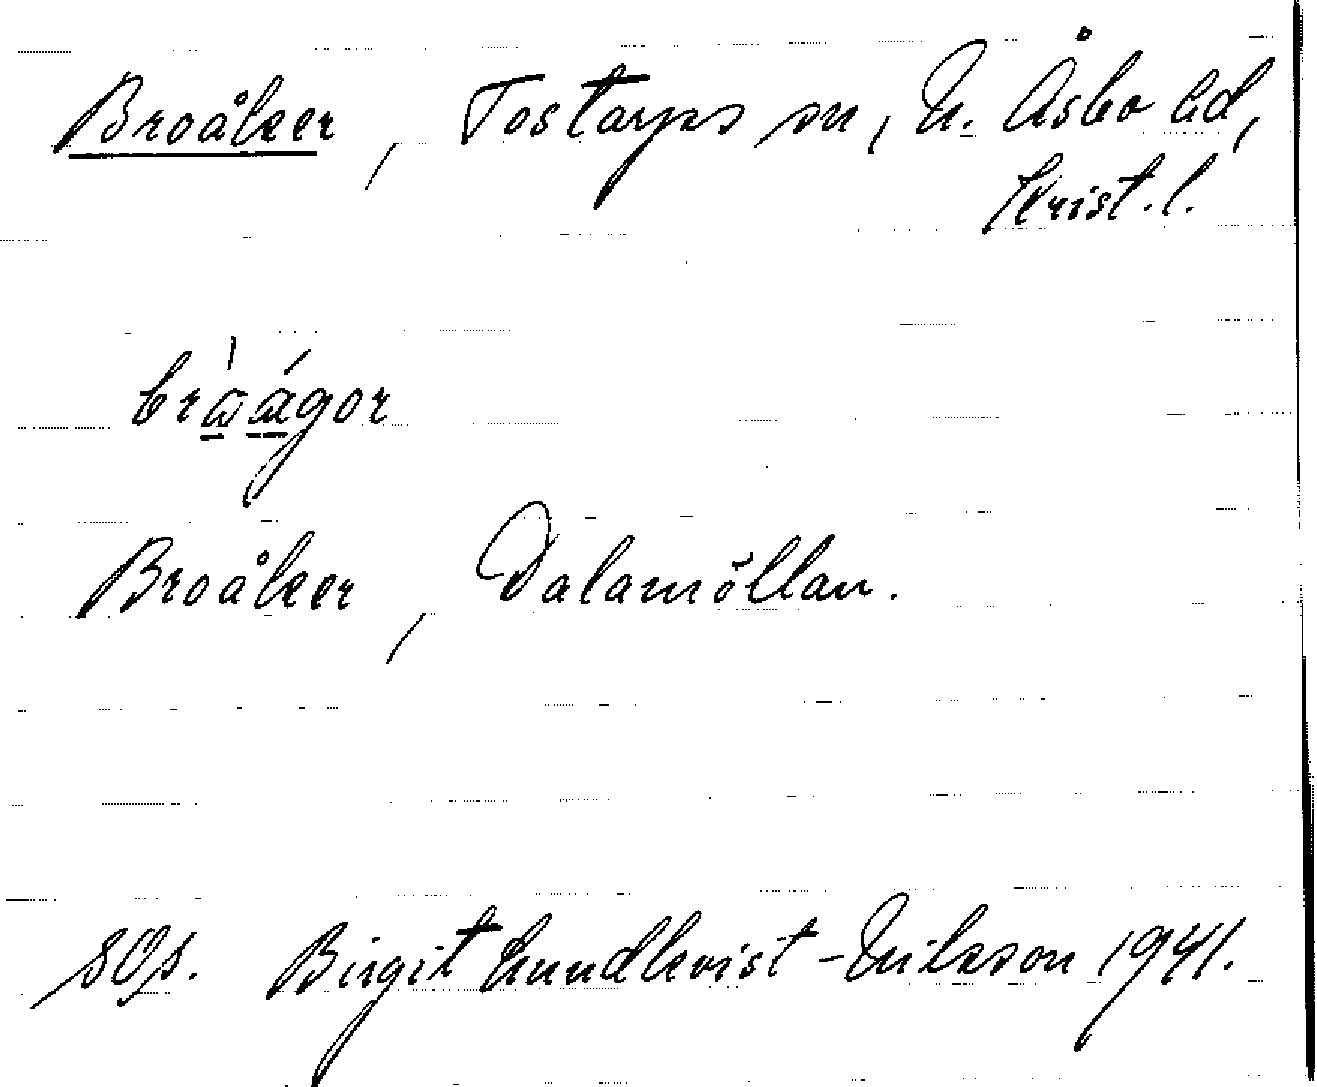 Broåker, Tostarps sn, N. Åsbo hd,
Krist. l.
Broåker, Dalamöllan.
sOs. Birgit Lundkvist-Nilsson 1941.